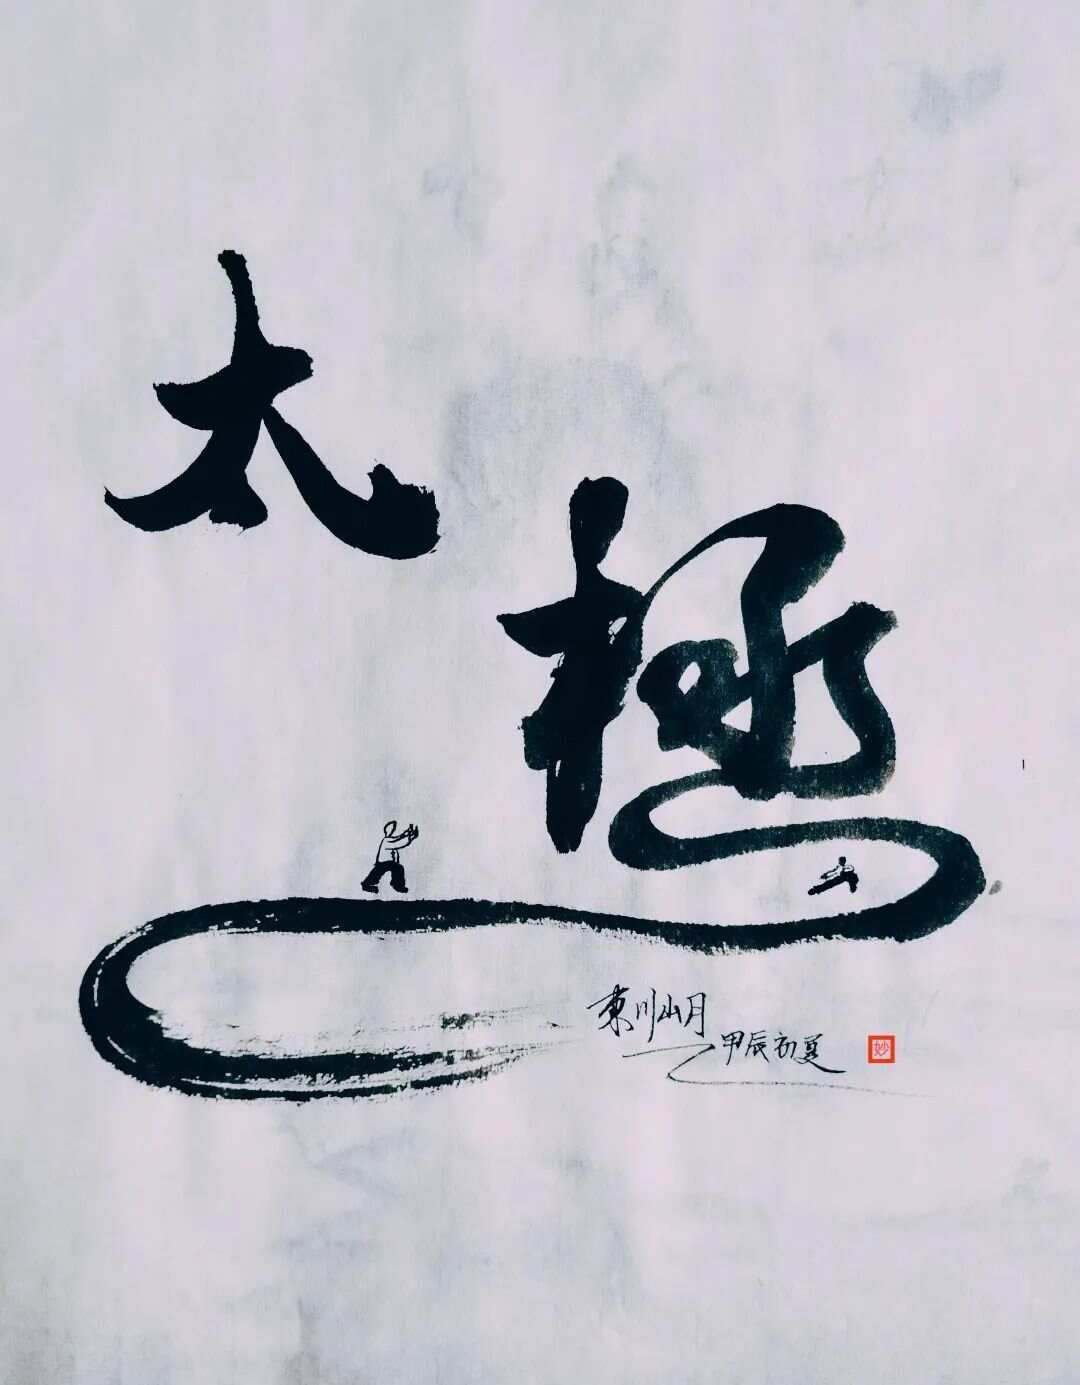 太極
東川山月
甲辰初夏
妙